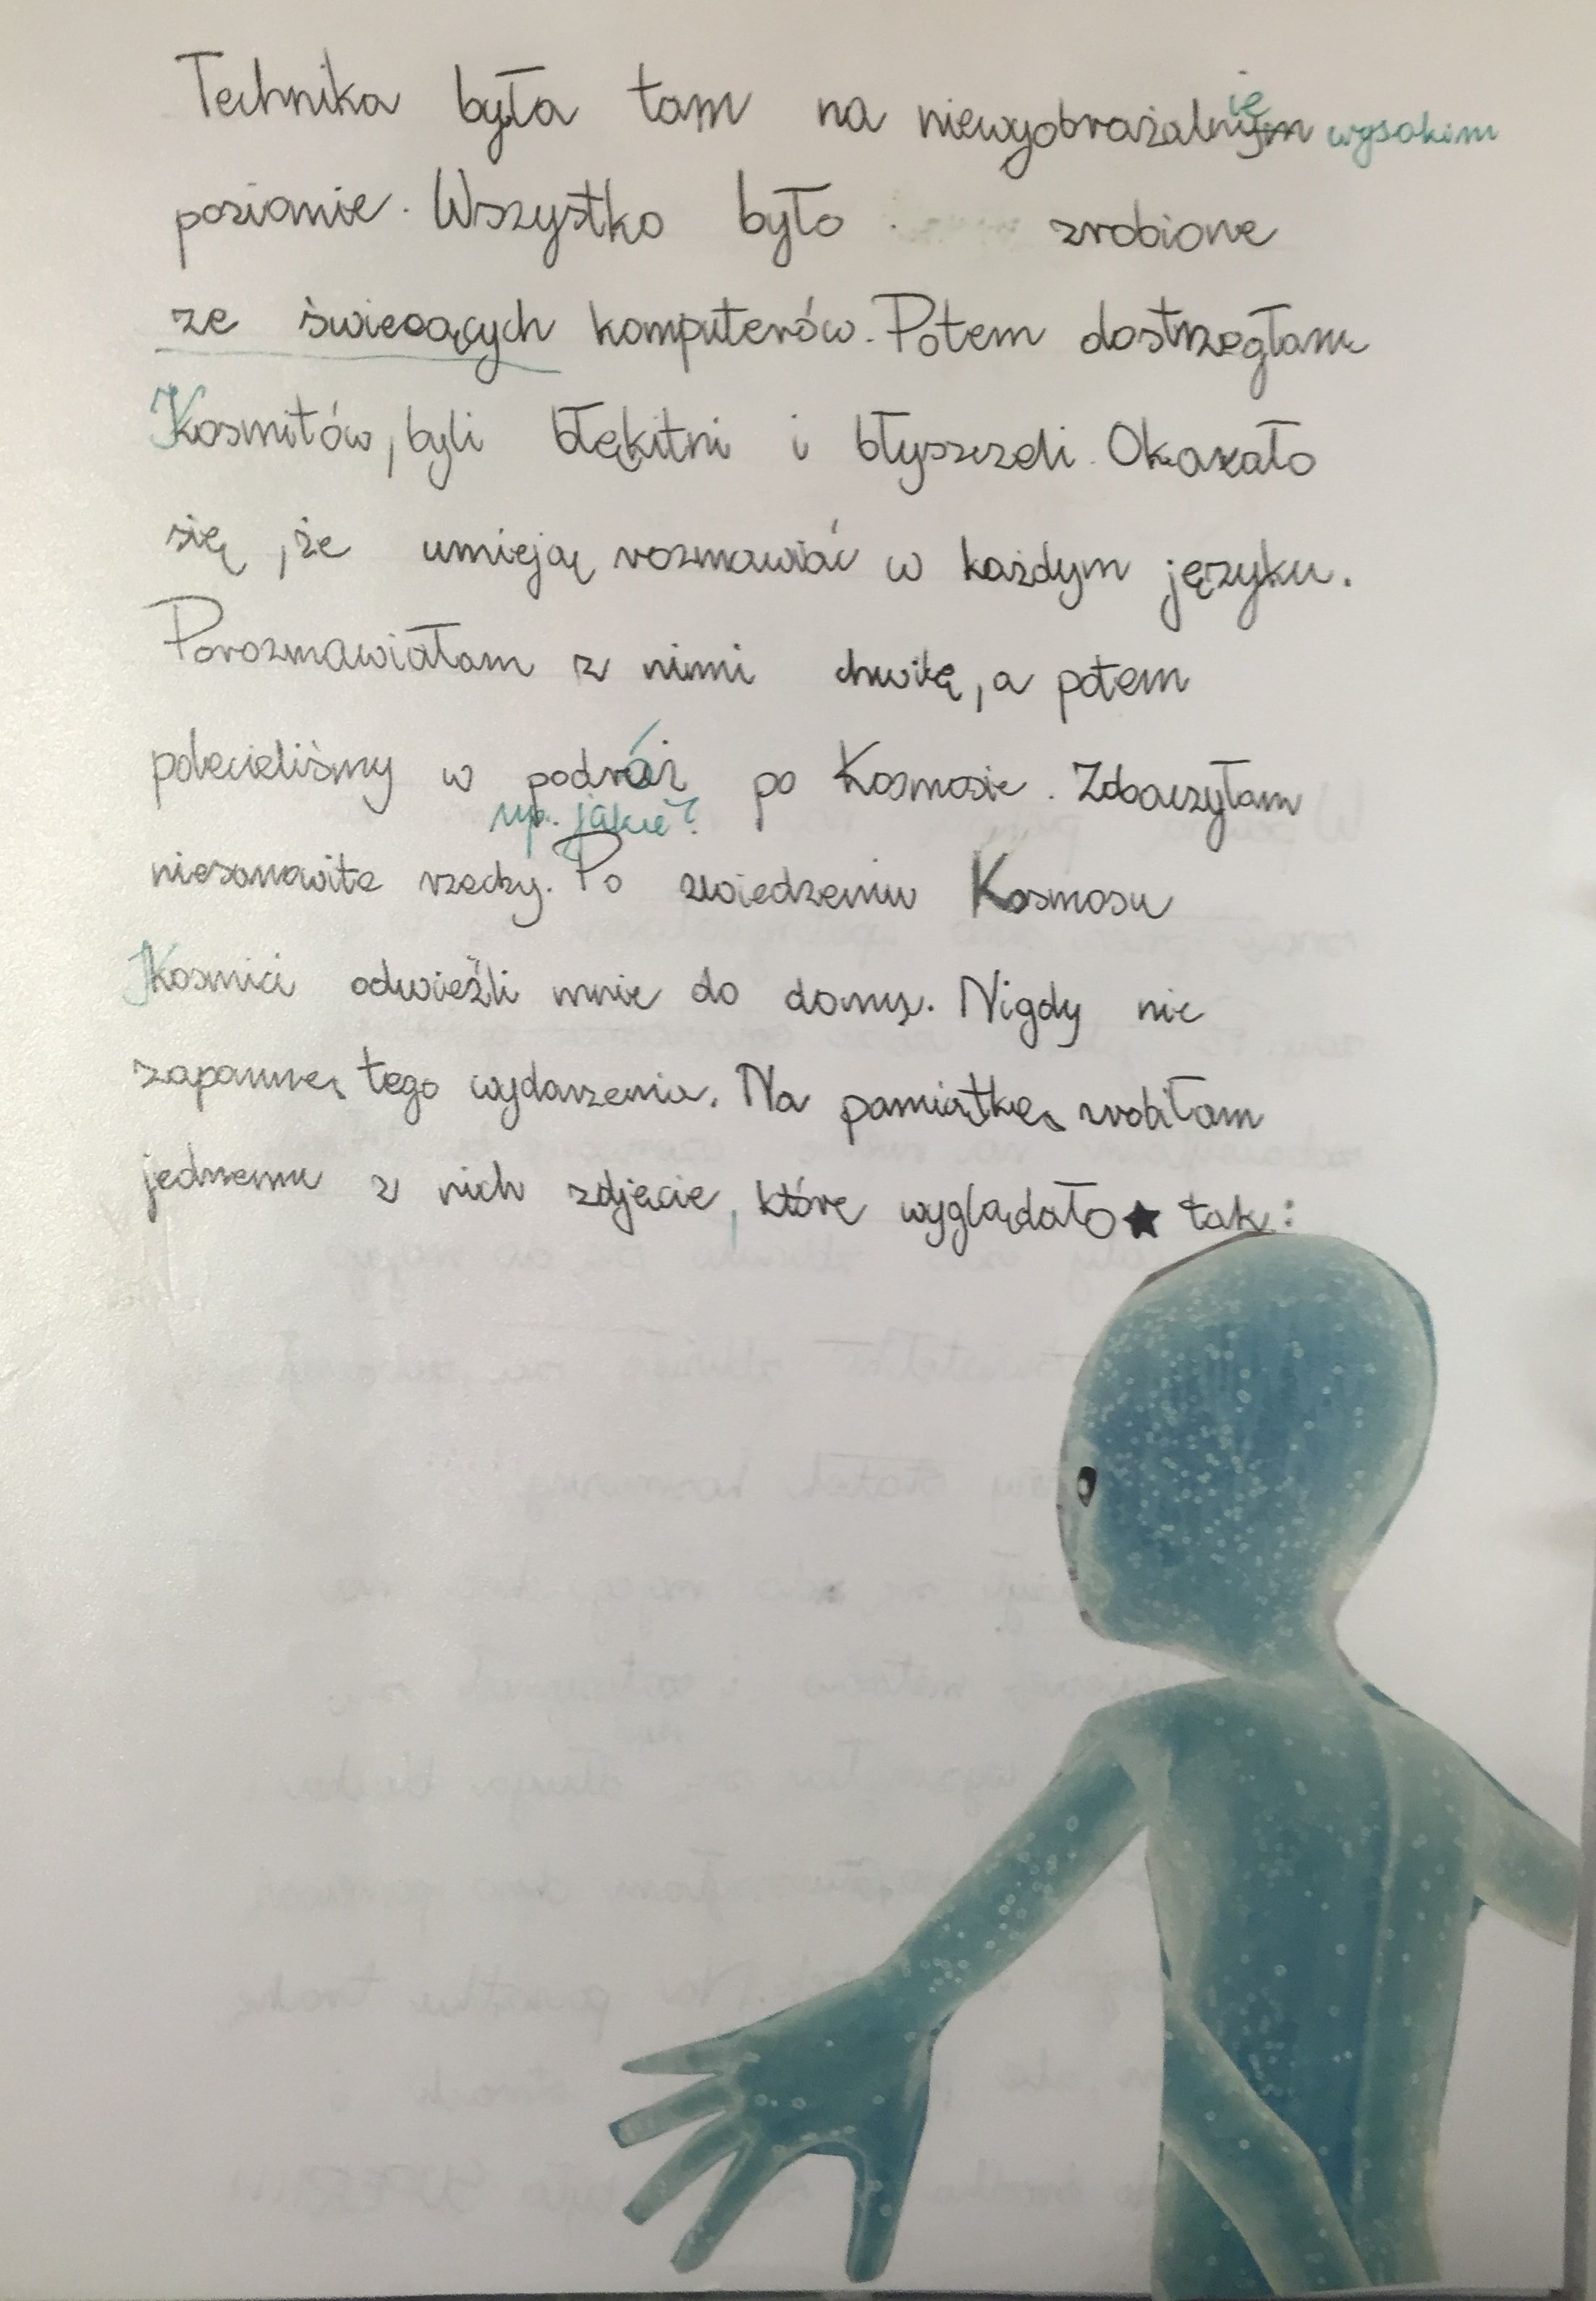 Technika była tam na niewyobrażalnie wysokim
poziomie. Wszystko było zrobione
ze świecących komputerów. Potem dostrzegłam
Kosmitów, byli błękitni i błyszczeli. Okazało
się, że umieją rozmawiać w każdym języku.
Porozmawiałam z nimi chwilę, a potem
polecieliśmy w podróż po Kosmosie. Zobaczyłam
np. jakie?
niesamowite rzeczy. Po zwiedzeniu Kosmosu
Kosmici odwieźli mnie do domu. Nigdy nie
zapomnę tego wydarzenia. Na pamiątkę zrobiłam
jednemu z nich zdjęcie, które wyglądało ★ tak: